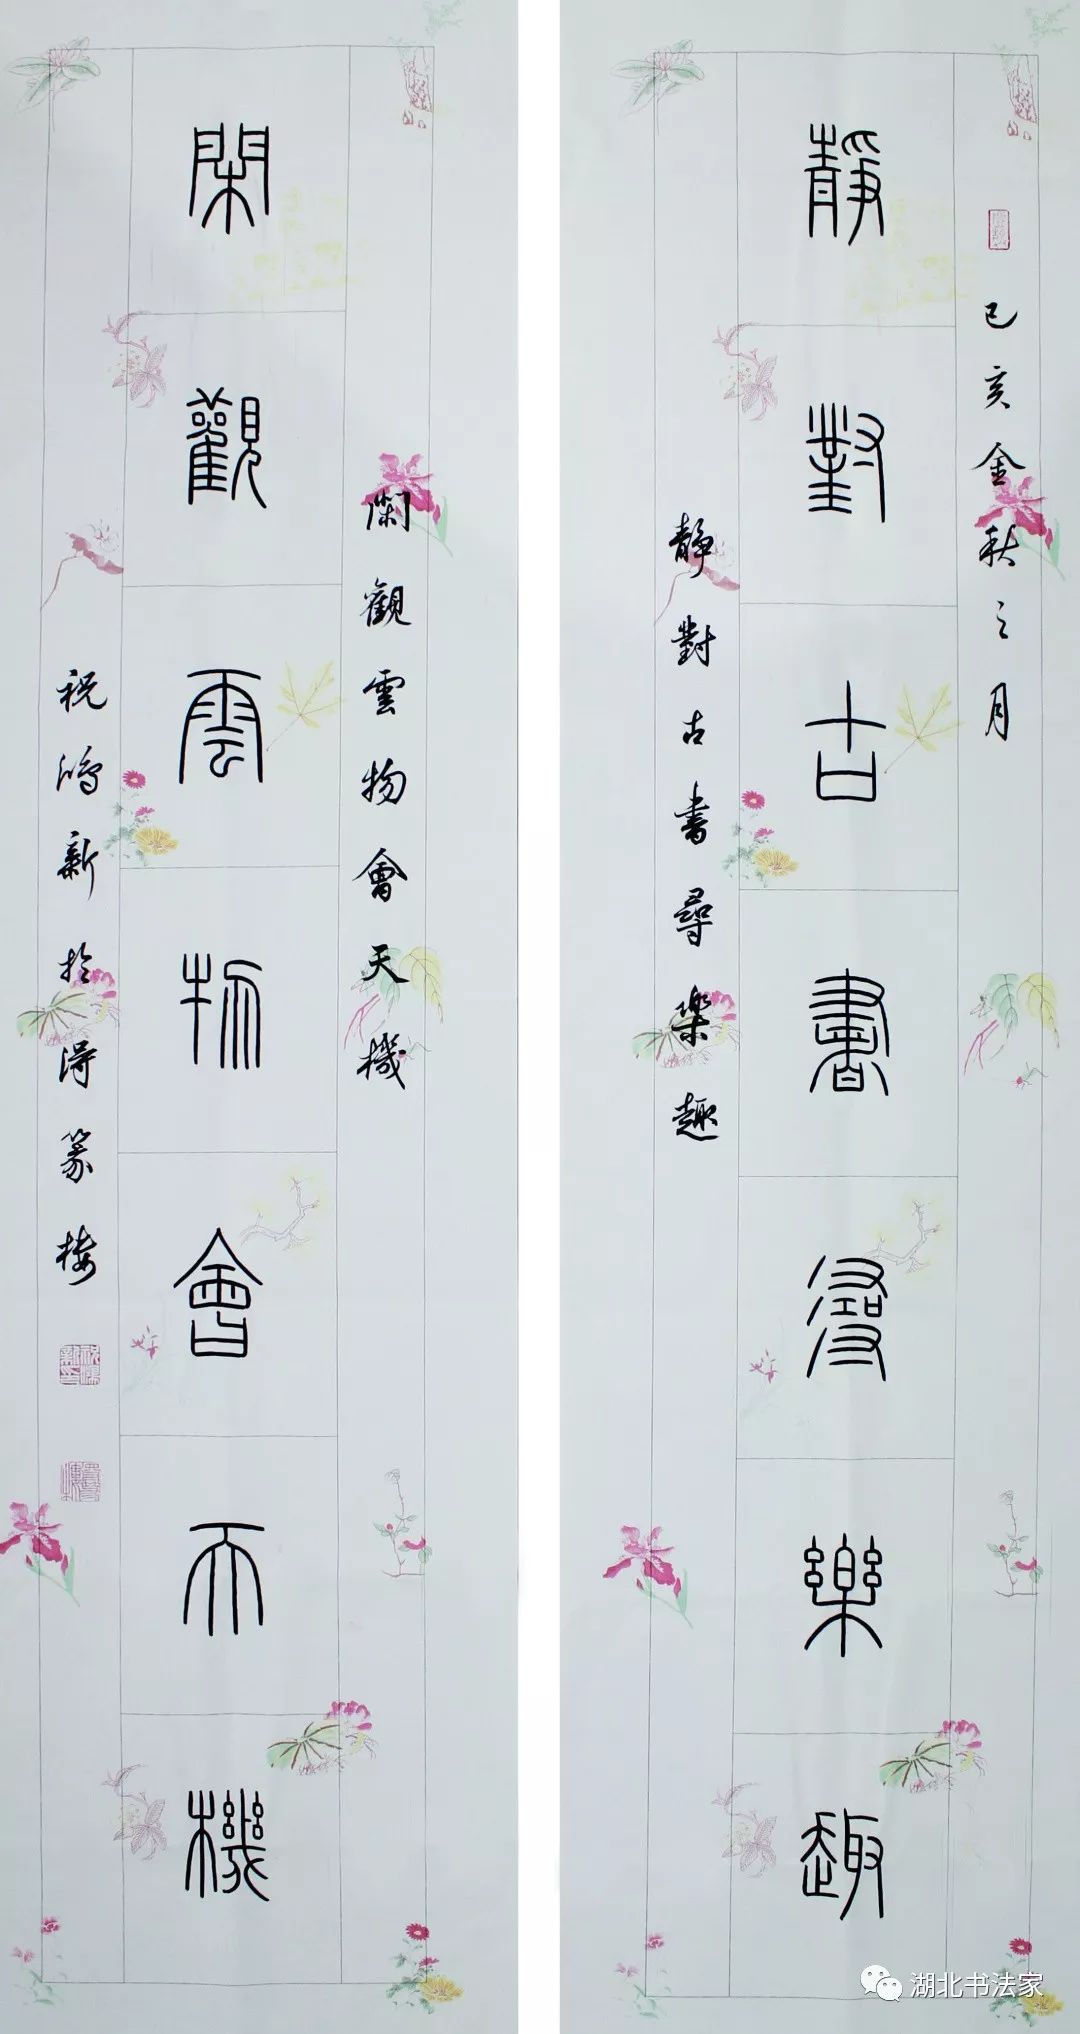 己亥金秋之月
靜對古書尋樂趣
靜對古書尋樂趣
閑觀雲物會天機
閑觀雲物會天機
祝鴻新於得篆樓
湖北书法家